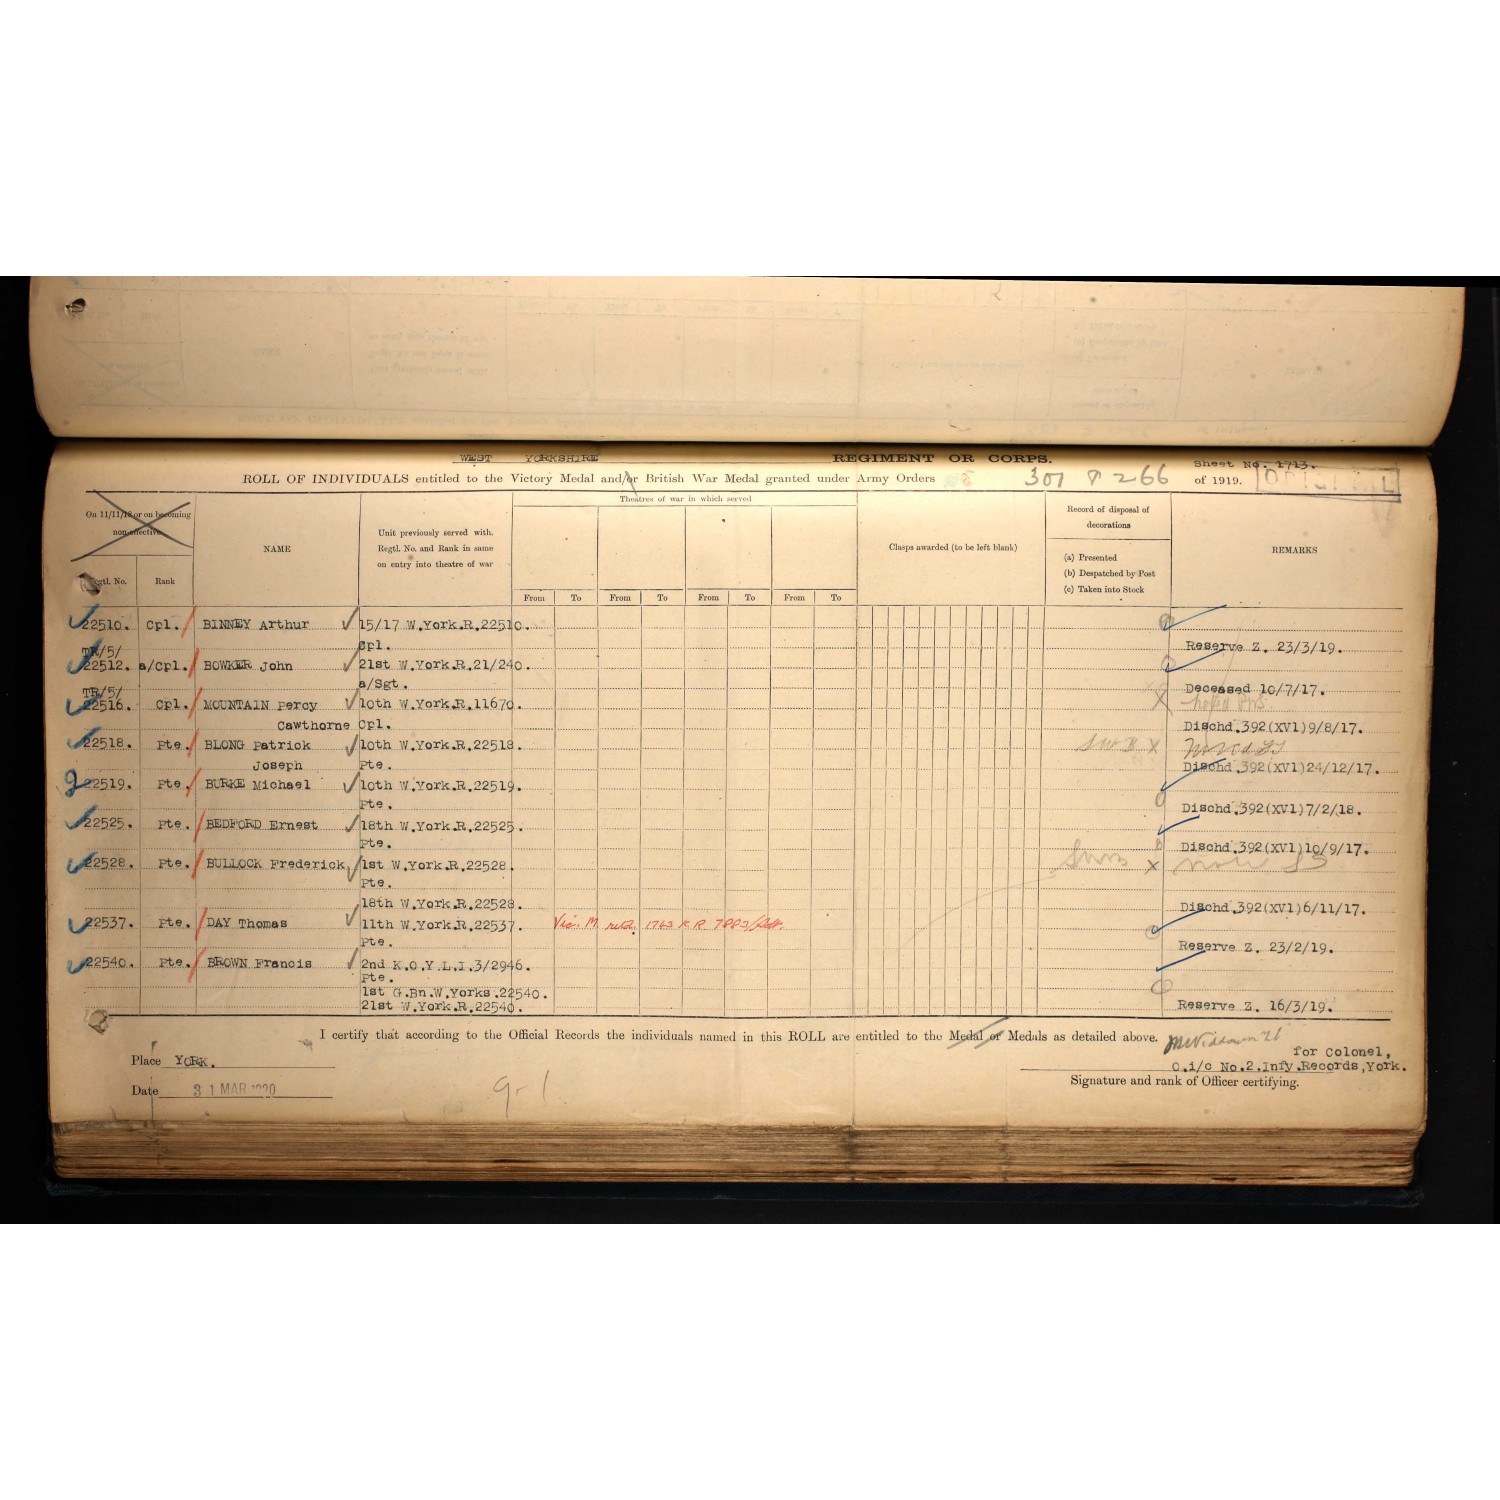 WEST YORKSHIRE REGIMENT OR CORPS. Sheet No. 1713.
ROLL OF INDIVIDUALS entitled to the Victory Medal and/or British War Medal granted under Army Orders 301 & 266 of 1919.
On 11/11/18 or on becoming non-effective
Regtl. No.
Rank
NAME
Unit previously served with.
Regtl. No. and Rank in same
on entry into theatre of war
Theatres of war in which served
From To From To From To From To
Clasps awarded (to be left blank)
Record of disposal of
decorations
(a) Presented
(b) Despatched by Post
(c) Taken into Stock
REMARKS
22510. Cpl. BINNEY Arthur 15/17 W.York.R.22510.
Cpl. Reserve Z. 23/3/19.
TR/5/
22512. a/Cpl. BOWKER John 21st W.York.R.21/240.
a/Sgt. Deceased 10/7/17.
TR/5/
22516. Cpl. MOUNTAIN Percy 10th W.York.R.11670. X
Cawthorne Cpl. Dischd.392(XV1)9/8/17.
22518. Pte. BLONG Patrick 10th W.York.R.22518. SWB X
Joseph Pte. Dischd.392(XV1)24/12/17.
22519. Pte. BURKE Michael 10th W.York.R.22519.
Pte. Dischd.392(XV1)7/2/18.
22525. Pte. BEDFORD Ernest 18th W.York.R.22525.
Pte. Dischd.392(XV1)10/9/17.
22528. Pte. BULLOCK Frederick 1st W.York.R.22528. SWB X
Pte.
18th W.York.R.22528. Dischd.392(XV1)6/11/17.
22537. Pte. DAY Thomas 11th W.York.R.22537. Vic. M. retd. 1763 K R 7883/Adt.
Pte. Reserve Z. 23/2/19.
22540. Pte. BROWN Francis 2nd K.O.Y.L.I.3/2946.
Pte.
1st G.Bn.W.Yorks.22540.
21st W.York.R.22540. Reserve Z. 16/3/19.
I certify that according to the Official Records the individuals named in this ROLL are entitled to the Medal or Medals as detailed above.
for Colonel,
Place YORK.
O.i/c No.2.Infy.Records,York.
Date 31 MAR 1920
Signature and rank of Officer certifying.
9-1